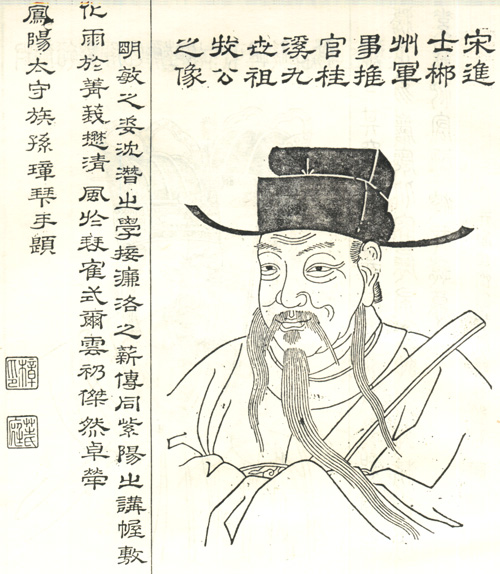 宋進
士郴
州軍
事推
官桂
溪九
世祖
牧公
之像
明敏之姿沈潛之學接濂洛之薪傳同紫陽之講幄敷
化雨於菁莪懋清風於琴隺式爾雲礽傑然卓犖
鳳陽太守族孫璋拜手題